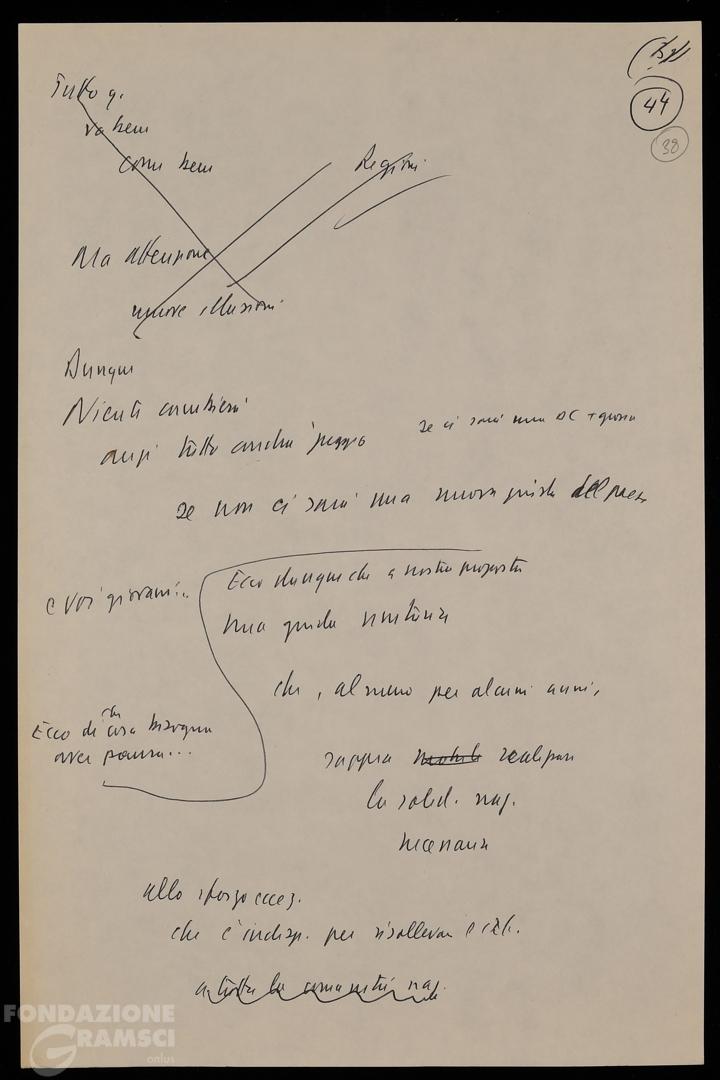 44
38
Tutto q.
va bene
come bene
Regioni
Ma attenzione
nuove illusioni
Dunque
Niente cambierà
anzi tutto andrà peggio
se ci sarà una DC + grossa
se non ci sarà una nuova guida del paese
e voi giovani...
Ecco dunque che a nostra proposta
una guida unitaria
che, almeno per alcuni anni,
Ecco di che cosa bisogna
aver paura...
sappia realizzare
la solid. naz.
necessaria
allo sforzo eccez.
che è indisp. per risollevare
a tutta la comunità naz.
FONDAZIONE
GRAMSCI
onlus